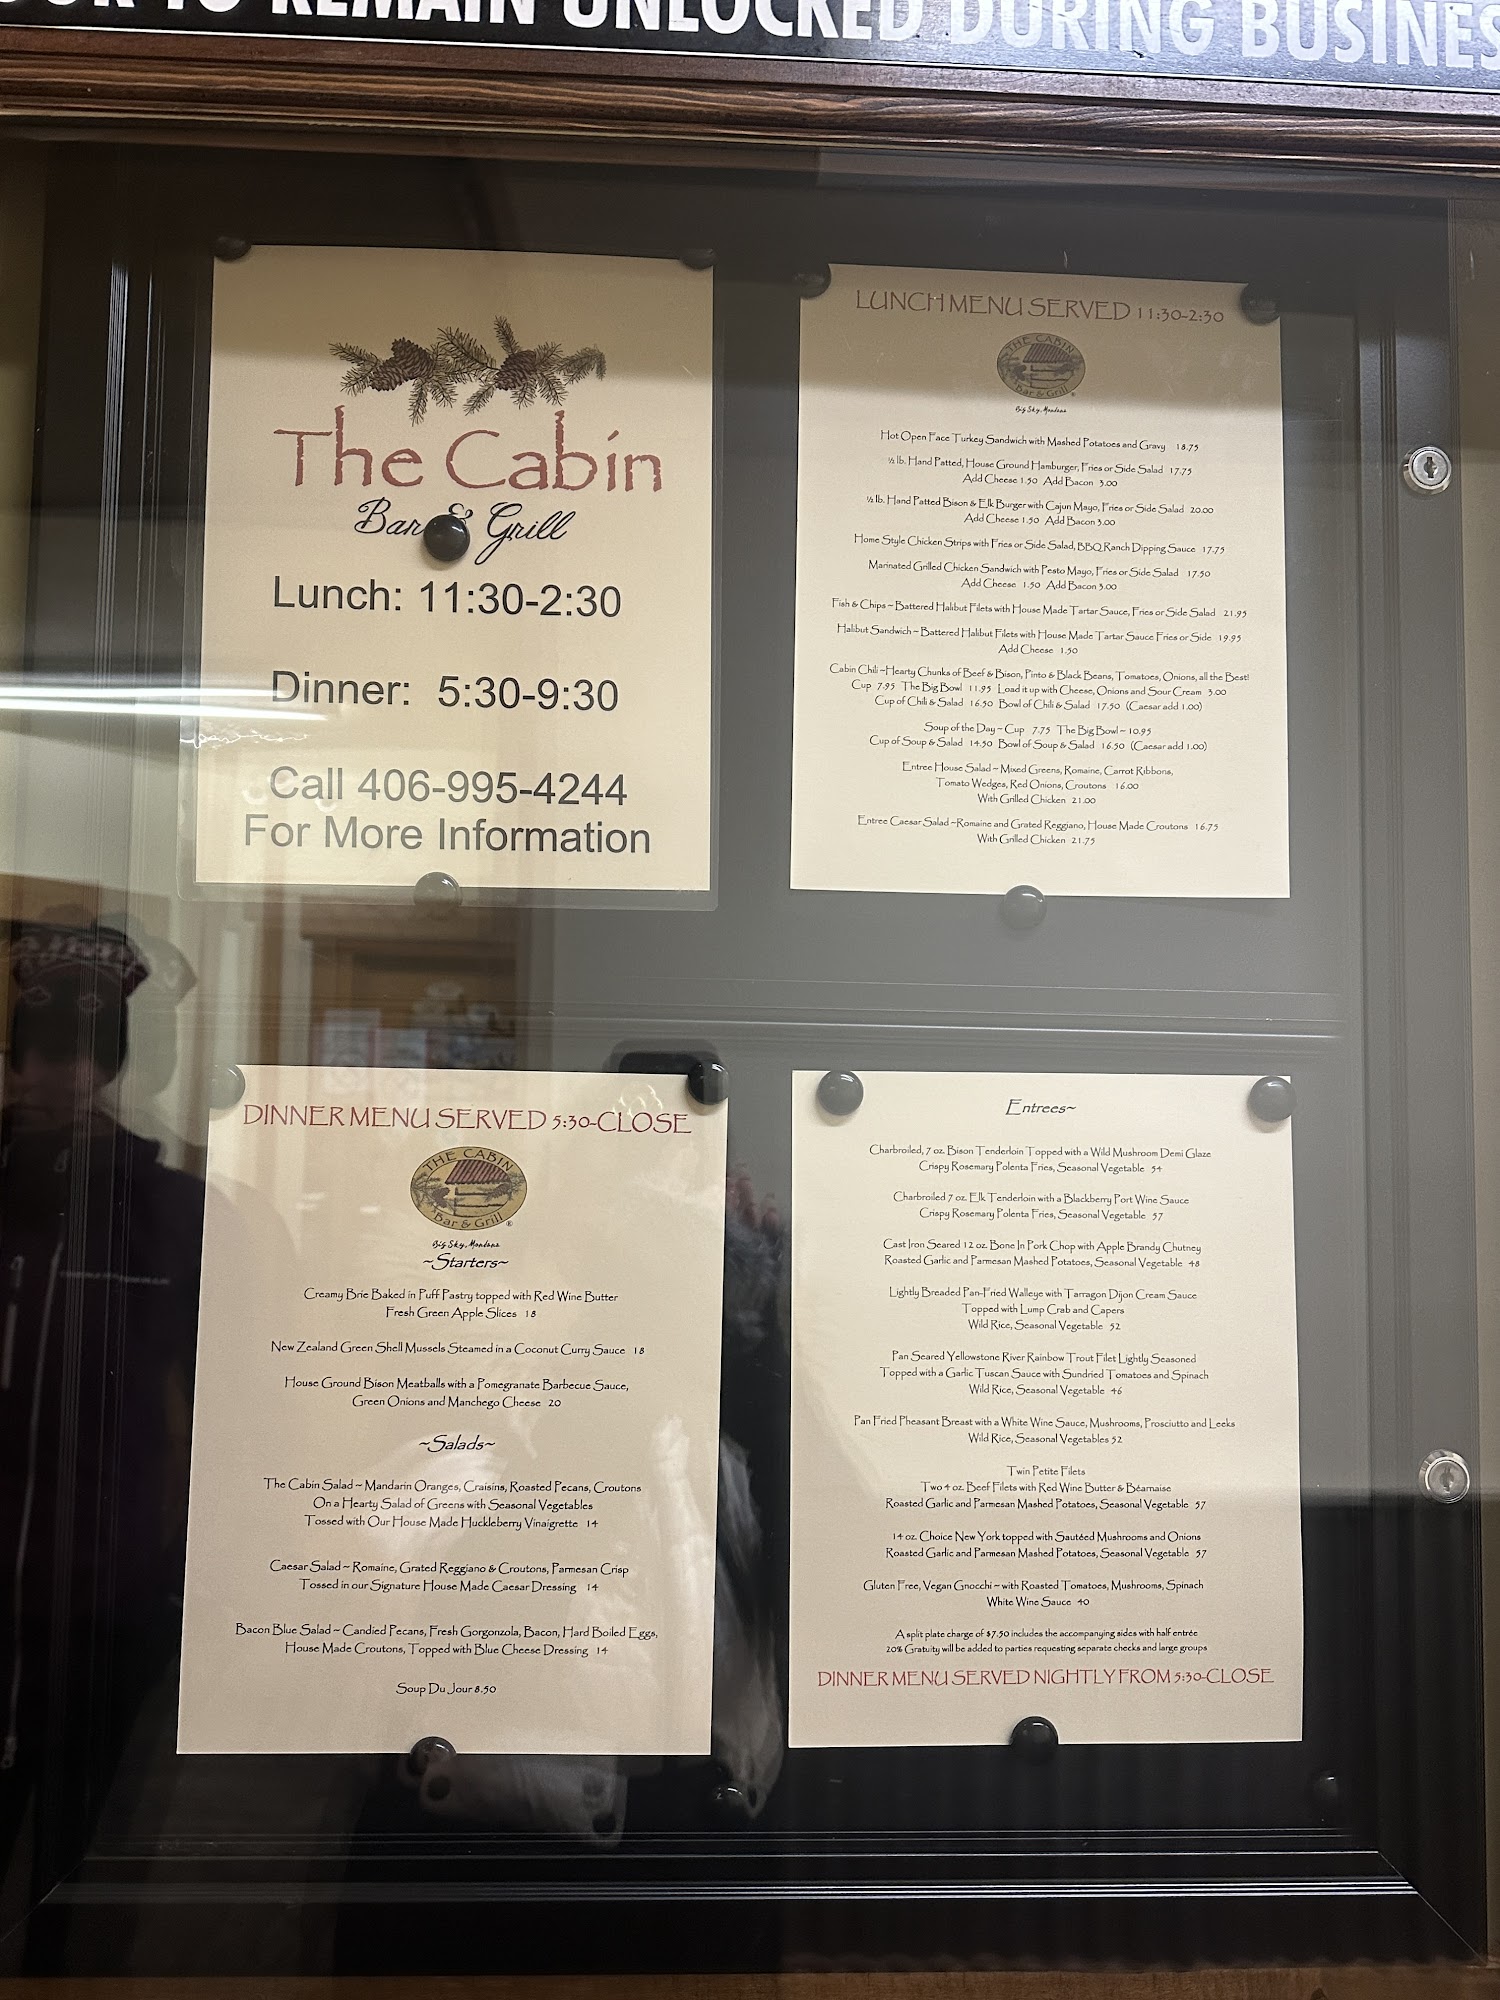 OOR TO REMAIN UNLOCKED DURING BUSINES
The Cabin
Bar & Grill
Lunch: 11:30-2:30
Dinner: 5:30-9:30
Call 406-995-4244
For More Information
LUNCH MENU SERVED 11:30-2:30
THE CABIN
Bar & Grill
Big Sky, Montana
Hot Open Face Turkey Sandwich with Mashed Potatoes and Gravy 18.75
½ lb. Hand Patted, House Ground Hamburger, Fries or Side Salad 17.75
Add Cheese 1.50 Add Bacon 3.00
½ lb. Hand Patted Bison & Elk Burger with Cajun Mayo, Fries or Side Salad 20.00
Add Cheese 1.50 Add Bacon 3.00
Home Style Chicken Strips with Fries or Side Salad, BBQ Ranch Dipping Sauce 17.75
Marinated Grilled Chicken Sandwich with Pesto Mayo, Fries or Side Salad 17.50
Add Cheese 1.50 Add Bacon 3.00
Fish & Chips ~ Battered Halibut Filets with House Made Tartar Sauce, Fries or Side Salad 21.95
Halibut Sandwich ~ Battered Halibut Filets with House Made Tartar Sauce Fries or Side 19.95
Add Cheese 1.50
Cabin Chili ~Hearty Chunks of Beef & Bison, Pinto & Black Beans, Tomatoes, Onions, all the Best!
Cup 7.95 The Big Bowl 11.95 Load it up with Cheese, Onions and Sour Cream 3.00
Cup of Chili & Salad 16.50 Bowl of Chili & Salad 17.50 (Caesar add 1.00)
Soup of the Day ~ Cup 7.75 The Big Bowl ~ 10.95
Cup of Soup & Salad 14.50 Bowl of Soup & Salad 16.50 (Caesar add 1.00)
Entree House Salad ~ Mixed Greens, Romaine, Carrot Ribbons,
Tomato Wedges, Red Onions, Croutons 16.00
With Grilled Chicken 21.00
Entree Caesar Salad ~Romaine and Grated Reggiano, House Made Croutons 16.75
With Grilled Chicken 21.75
DINNER MENU SERVED 5:30-CLOSE
THE CABIN
Bar & Grill ®
Big Sky, Montana
~Starters~
Creamy Brie Baked in Puff Pastry topped with Red Wine Butter
Fresh Green Apple Slices 18
New Zealand Green Shell Mussels Steamed in a Coconut Curry Sauce 18
House Ground Bison Meatballs with a Pomegranate Barbecue Sauce,
Green Onions and Manchego Cheese 20
~Salads~
The Cabin Salad ~ Mandarin Oranges, Craisins, Roasted Pecans, Croutons
On a Hearty Salad of Greens with Seasonal Vegetables
Tossed with Our House Made Huckleberry Vinaigrette 14
Caesar Salad ~ Romaine, Grated Reggiano & Croutons, Parmesan Crisp
Tossed in our Signature House Made Caesar Dressing 14
Bacon Blue Salad ~ Candied Pecans, Fresh Gorgonzola, Bacon, Hard Boiled Eggs,
House Made Croutons, Topped with Blue Cheese Dressing 14
Soup Du Jour 8.50
Entrees~
Charbroiled, 7 oz. Bison Tenderloin Topped with a Wild Mushroom Demi Glaze
Crispy Rosemary Polenta Fries, Seasonal Vegetable 54
Charbroiled 7 oz. Elk Tenderloin with a Blackberry Port Wine Sauce
Crispy Rosemary Polenta Fries, Seasonal Vegetable 57
Cast Iron Seared 12 oz. Bone In Pork Chop with Apple Brandy Chutney
Roasted Garlic and Parmesan Mashed Potatoes, Seasonal Vegetable 48
Lightly Breaded Pan-Fried Walleye with Tarragon Dijon Cream Sauce
Topped with Lump Crab and Capers
Wild Rice, Seasonal Vegetable 52
Pan Seared Yellowstone River Rainbow Trout Filet Lightly Seasoned
Topped with a Garlic Tuscan Sauce with Sundried Tomatoes and Spinach
Wild Rice, Seasonal Vegetable 46
Pan Fried Pheasant Breast with a White Wine Sauce, Mushrooms, Prosciutto and Leeks
Wild Rice, Seasonal Vegetables 52
Twin Petite Filets
Two 4 oz. Beef Filets with Red Wine Butter & Béarnaise
Roasted Garlic and Parmesan Mashed Potatoes, Seasonal Vegetable 57
14 oz. Choice New York topped with Sautéed Mushrooms and Onions
Roasted Garlic and Parmesan Mashed Potatoes, Seasonal Vegetable 57
Gluten Free, Vegan Gnocchi ~ with Roasted Tomatoes, Mushrooms, Spinach
White Wine Sauce 40
A split plate charge of $7.50 includes the accompanying sides with half entrée
20% Gratuity will be added to parties requesting separate checks and large groups
DINNER MENU SERVED NIGHTLY FROM 5:30-CLOSE